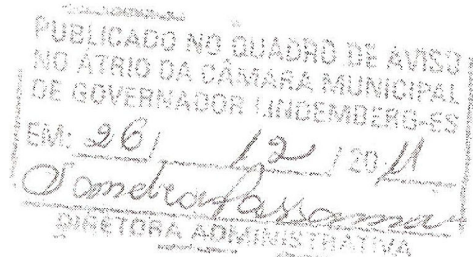 PUBLICADO NO QUADRO DE AVISO
NO ÁTRIO DA CÂMARA MUNICIPAL
DE GOVERNADOR LINDEMBERG-ES
EM: 26/ 12 / 20 11
Sandra Passama
DIRETORA ADMINISTRATIVA